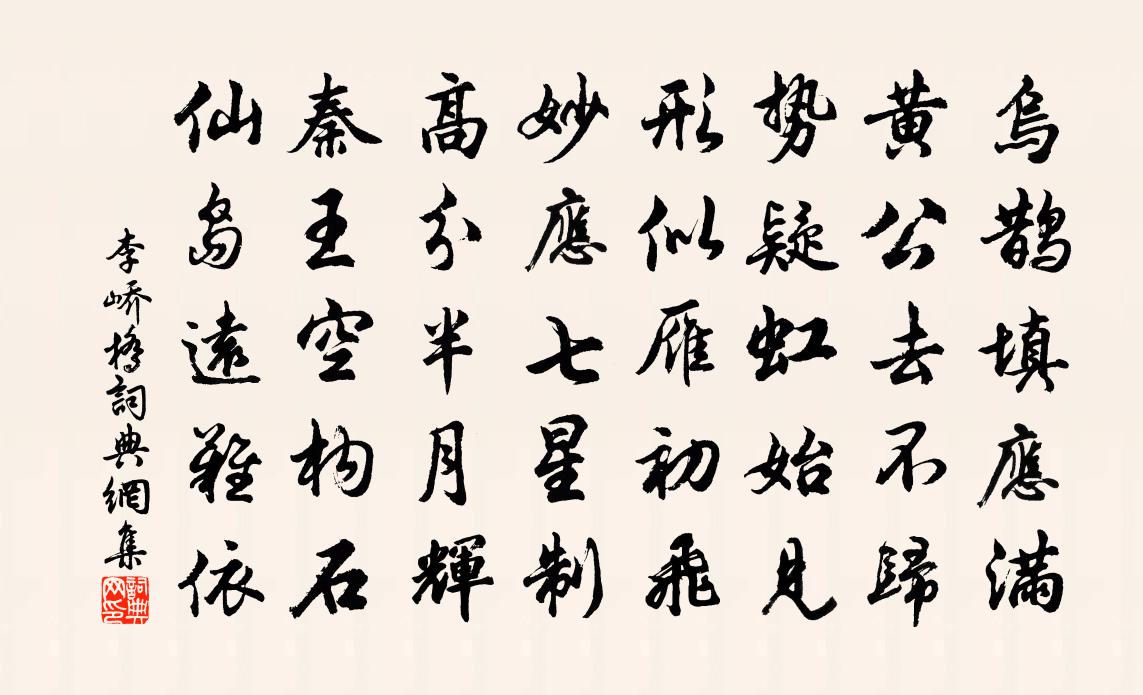 烏鵲填應滿
黃公去不歸
勢疑虹始見
形似雁初飛
妙應七星制
高分半月輝
秦王空构石
仙島遠難依
李嶠橋詞典網集
詞典网印